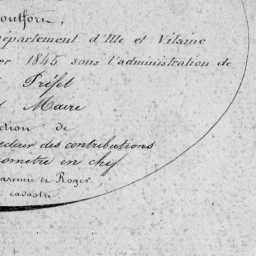 Montfort,
département d'Ille et Vilaine
1845 sous l'administration de
Préfet
Maire
ction de
des contributions
omètre en chef
et Roger
cadastre